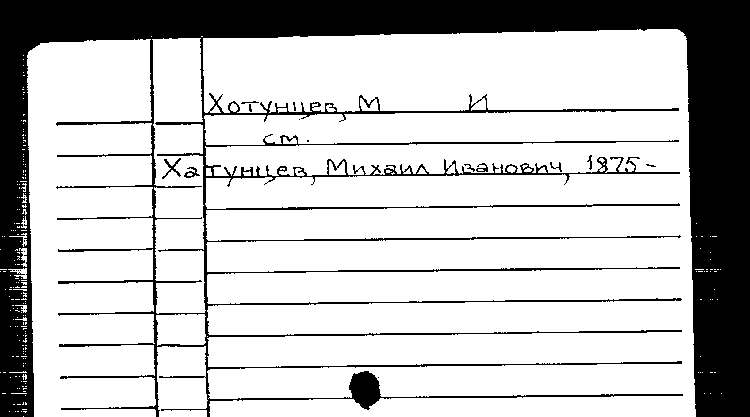 Хотунцев, М И
см.
Хатунцев, Михаил Иванович, 1875-